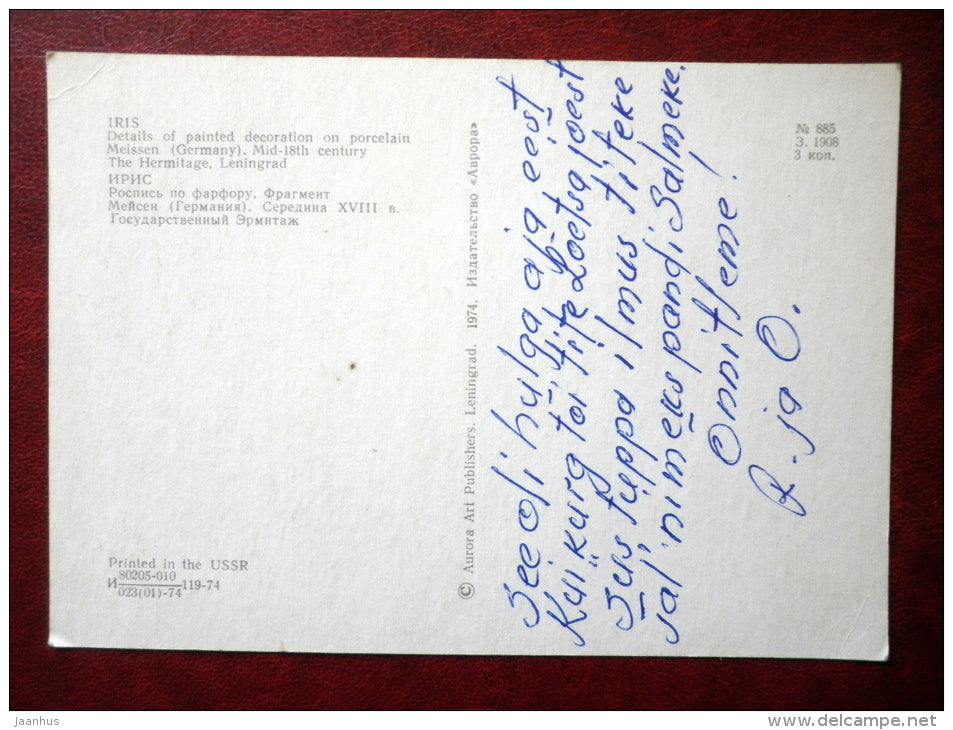 IRIS
Details of painted decoration on porcelain
Meissen (Germany). Mid-18th century
The Hermitage, Leningrad
ИРИС
Роспись по фарфору. Фрагмент
Мейсен (Германия). Середина XVIII в.
Государственный Эрмитаж
Printed in the USSR
И 80205-010 119-74
023(01)-74
© Aurora Art Publishers. Leningrad. 1974. Издательство «Аврора»
№ 885
З. 1908
3 коп.
See oli hulga aja eest
Kui kurg tõi tite Loetsa jõest
Teie tuppa ilmus titeke
ja nimeks pandi Salmeke.
Õnnitleme!
R. ja O.
Jaanhus
www.delcampe.net